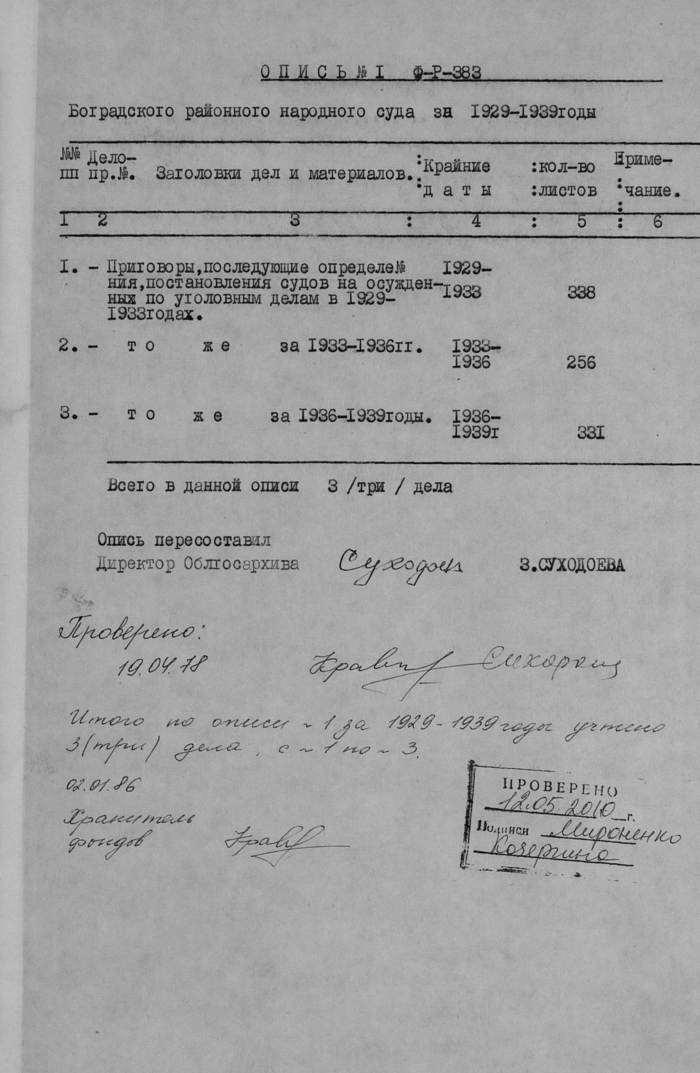 О П И С Ь № I Ф-Р-383
Боградского районного народного суда за 1929-1939годы
№№ Дело- :Крайние :кол-во Приме-
пп пр.№. Заголовки дел и материалов. :д а т ы :листов :чание.
I 2 3 : 4 : 5 : 6
I. - Приговоры,последующие определе№ 1929-
ния,постановления судов на осужден- 1933 338
ных по уголовным делам в 1929-
1933годах.
2. - т о ж е за 1933-1936гг. 1933-
1936 256
3. - т о ж е за 1936-1939годы. 1936-
1939г 331
Всего в данной описи 3 /три / дела
Опись пересоставил
Директор Облгосархива З.СУХОДОЕВА
Проверено:
19.04.78
Итого по описи № 1 за 1929-1939 годы учтено
3(три) дела, с № 1 по № 3.
02.01.86
Хранитель
фондов
ПРОВЕРЕНО
12.05.2010 г.
Подписи Мироненко
Кочергина